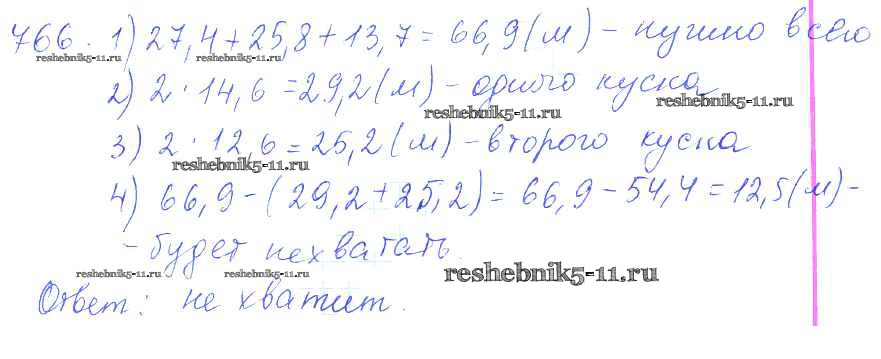 766. 1) 27,4+25,8+13,7=66,9(м) - нужно всего
reshebnik5-11.ru reshebnik5-11.ru
2) 2·14,6=29,2(м) - одного куска
reshebnik5-11.ru reshebnik5-11.ru
3) 2·12,6=25,2(м) - второго куска
reshebnik5-11.ru
4) 66,9-(29,2+25,2)=66,9-54,4=12,5(м)-
- будет нехватать.
reshebnik5-11.ru reshebnik5-11.ru reshebnik5-11.ru
Ответ: не хватит.